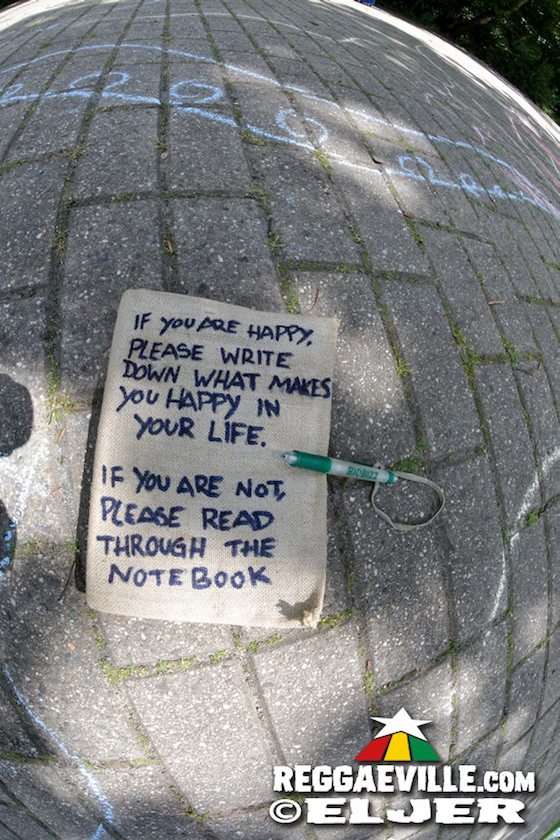 IF YOU ARE HAPPY,
PLEASE WRITE
DOWN WHAT MAKES
YOU HAPPY IN
YOUR LIFE.
IF YOU ARE NOT,
PLEASE READ
THROUGH THE
NOTEBOOK
BIOBIZZ
REGGAEVILLE.COM
©ELJER